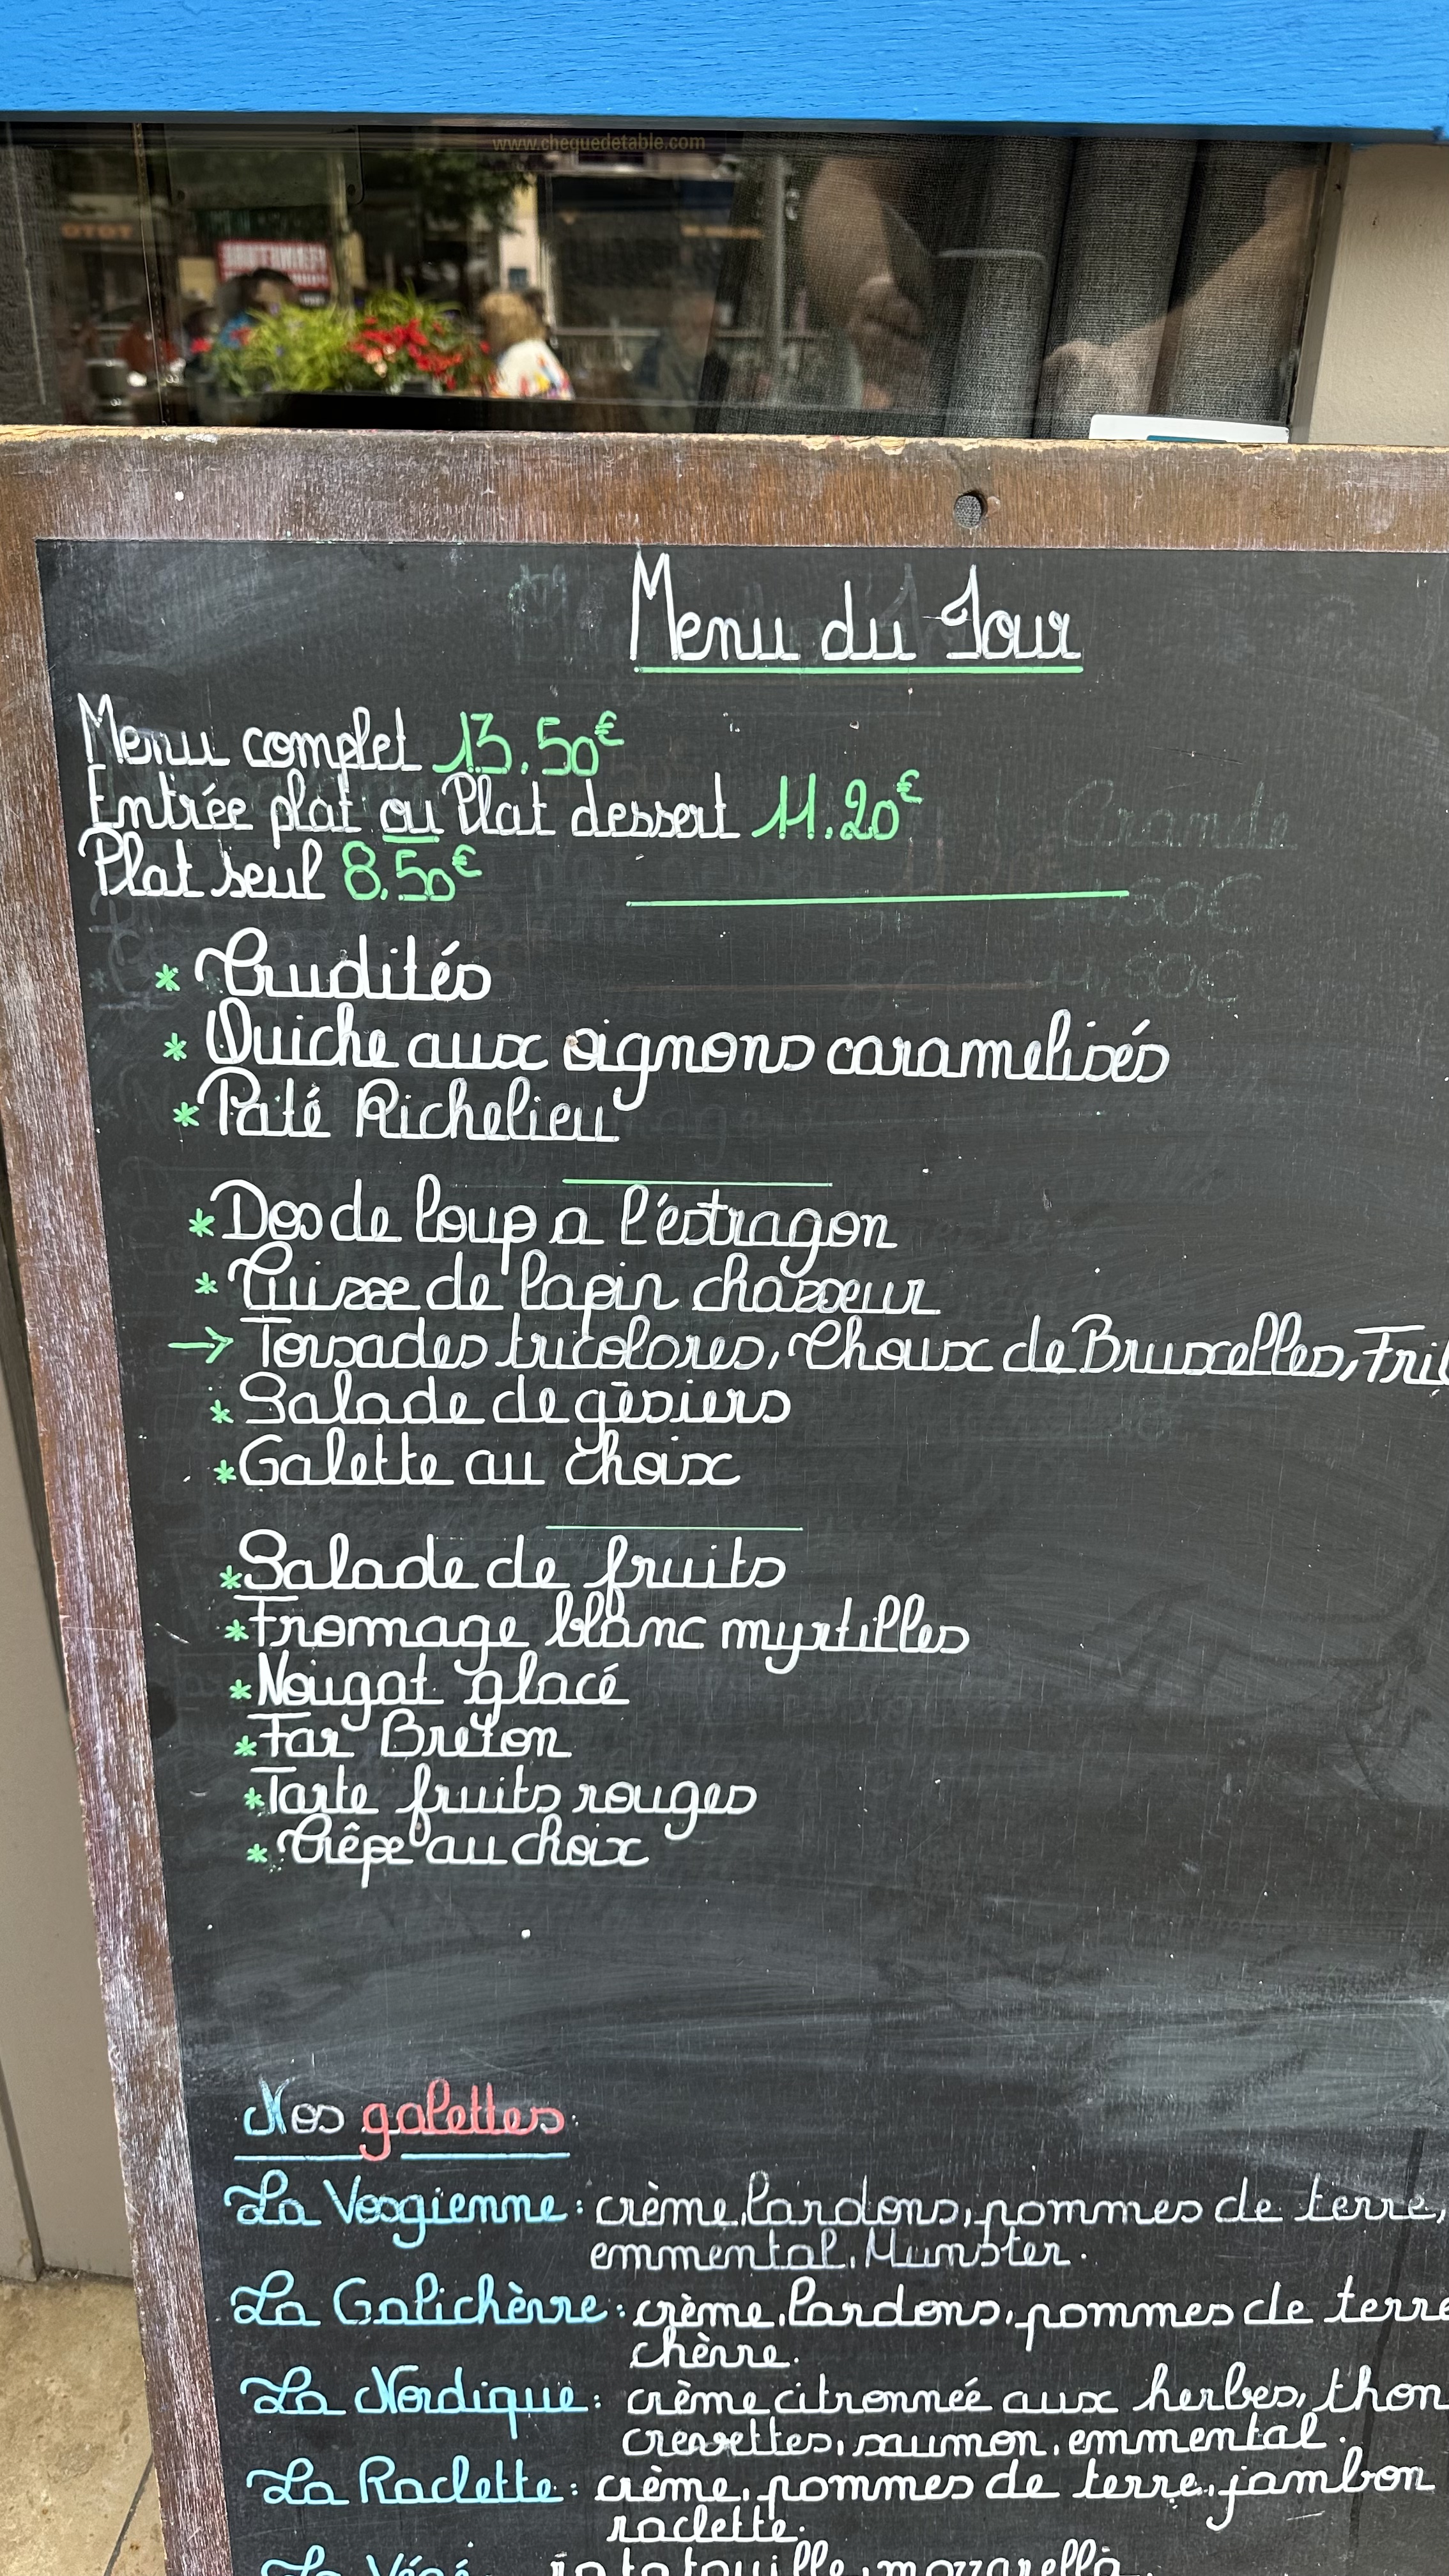 www.chequedetable.com
Menu du Jour
Menu complet 13.50€
Entrée plat ou Plat dessert 11.20€
Plat seul 8.50€
* Crudités
* Quiche aux oignons caramelisés
* Paté Richelieu
* Dos de loup a l'éstragon
* Cuisse de lapin chasseur
→ Torsades tricolores, Choux de Bruxelles,
* Salade de gésiers
* Galette au choix
* Salade de fruits
* Fromage blanc myrtilles
* Nougat glacé
* Far Breton
* Tarte fruits rouges
* Crêpe au choix
Nos galettes:
La Vosgienne: crème, lardons, pommes de terre,
emmental, Munster.
La Galichèvre: crème, lardons, pommes de terre
chèvre.
La Nordique: crème citronnée aux herbes, thon
crevettes, saumon, emmental.
La Raclette: crème, pommes de terre, jambon
raclette.
La Végé: ratatouille, mozzarella.